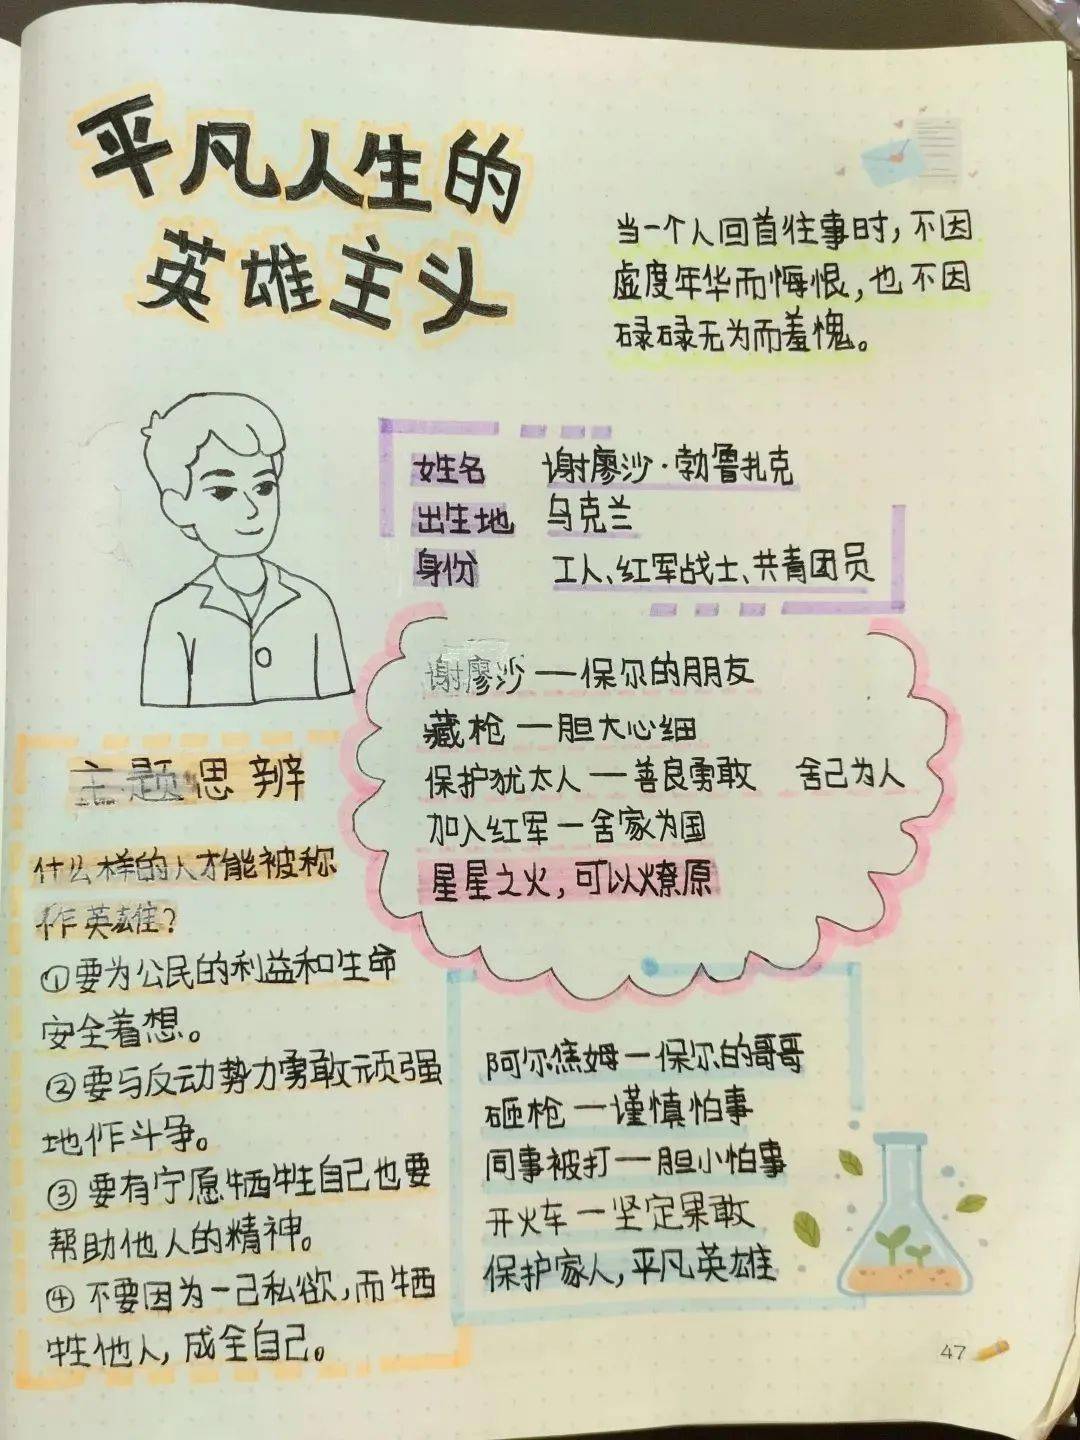 平凡人生的
英雄主义
当一个人回首往事时，不因
虚度年华而悔恨，也不因
碌碌无为而羞愧。
姓名 谢廖沙·勃鲁扎克
出生地 乌克兰
身份 工人、红军战士、共青团员
谢廖沙—保尔的朋友
藏枪—胆大心细
保护犹太人—善良勇敢 舍己为人
加入红军—舍家为国
星星之火，可以燎原
主题思辨
什么样的人才能被称
作英雄？
①要为公民的利益和生命
安全着想。
②要与反动势力勇敢顽强
地作斗争。
③要有宁愿牺牲自己也要
帮助他人的精神。
④不要因为一己私欲，而牺
牲他人，成全自己。
阿尔焦姆—保尔的哥哥
砸枪—谨慎怕事
同事被打—胆小怕事
开火车—坚定果敢
保护家人，平凡英雄
47